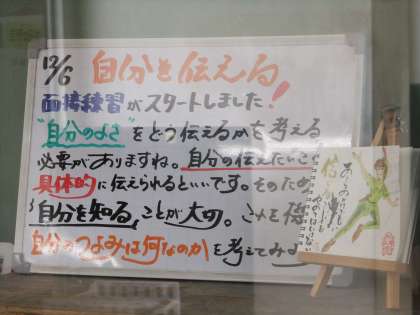 12/6 自分を伝える!
面接練習がスタートしました!
"自分のよさ"をどう伝えるかを考える
必要がありますね。自分の伝えたいこと
具体的に伝えられるといいです。そのため
自分を知ることが大切。
自分のつよみは何なのかを考えてみ